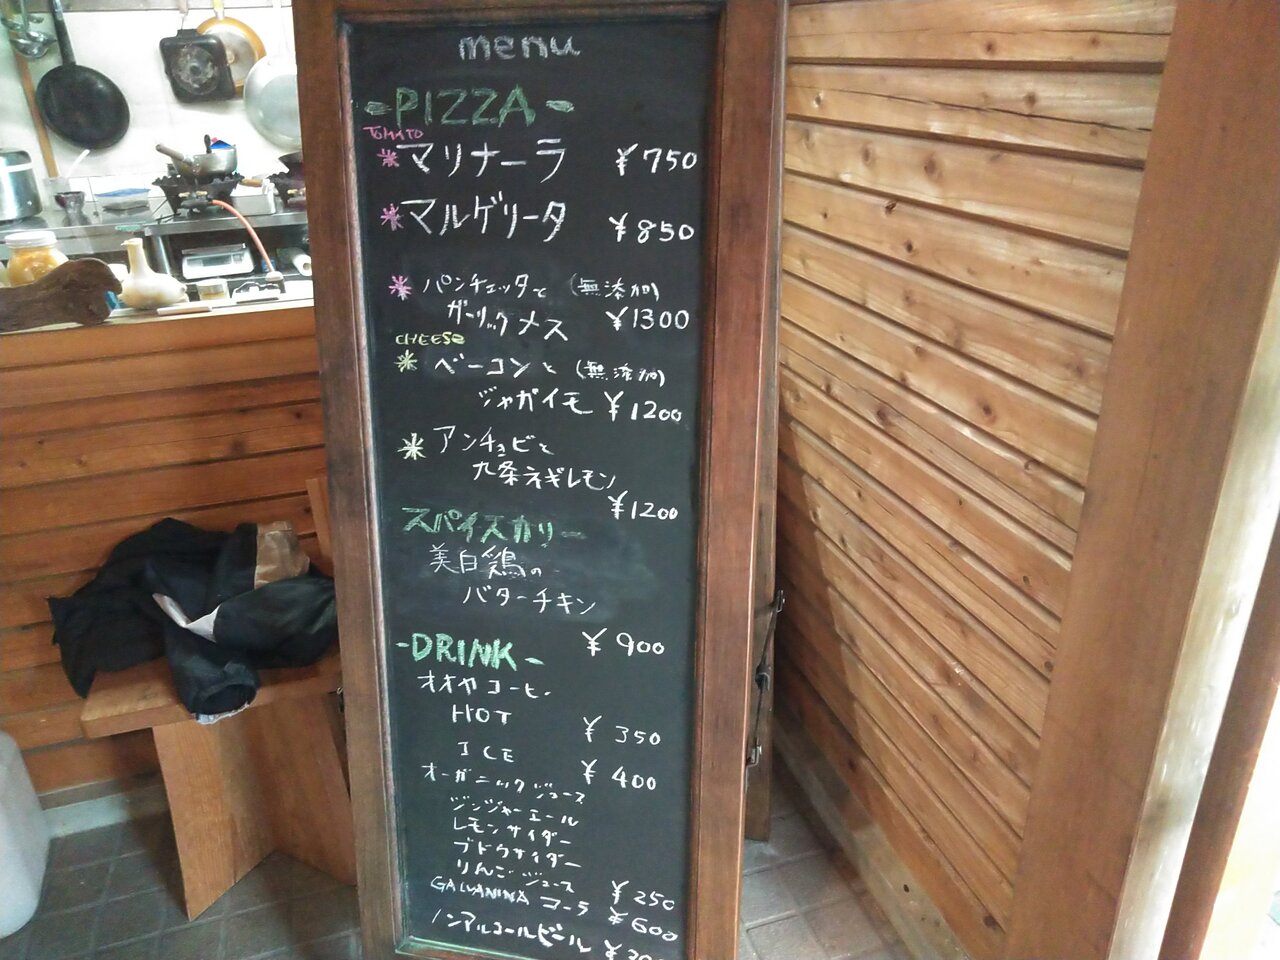 menu
-PIZZA-
TOMATO
*マリナーラ ¥750
*マルゲリータ ¥850
*パンチェッタと (無添加)
ガーリックメス ¥1300
CHEESE
*ベーコンと (無添加)
ジャガイモ ¥1200
*アンチョビと
九条ネギレモン
¥1200
スパイスカリー
美白鶏の
バターチキン
¥900
-DRINK-
オオヤコーヒー
HOT ¥350
ICE ¥400
オーガニックジュース
ジンジャーエール
レモンサイダー
ブドウサイダー
りんごジュース ¥250
GALVANINA コーラ ¥600
ノンアルコールビール